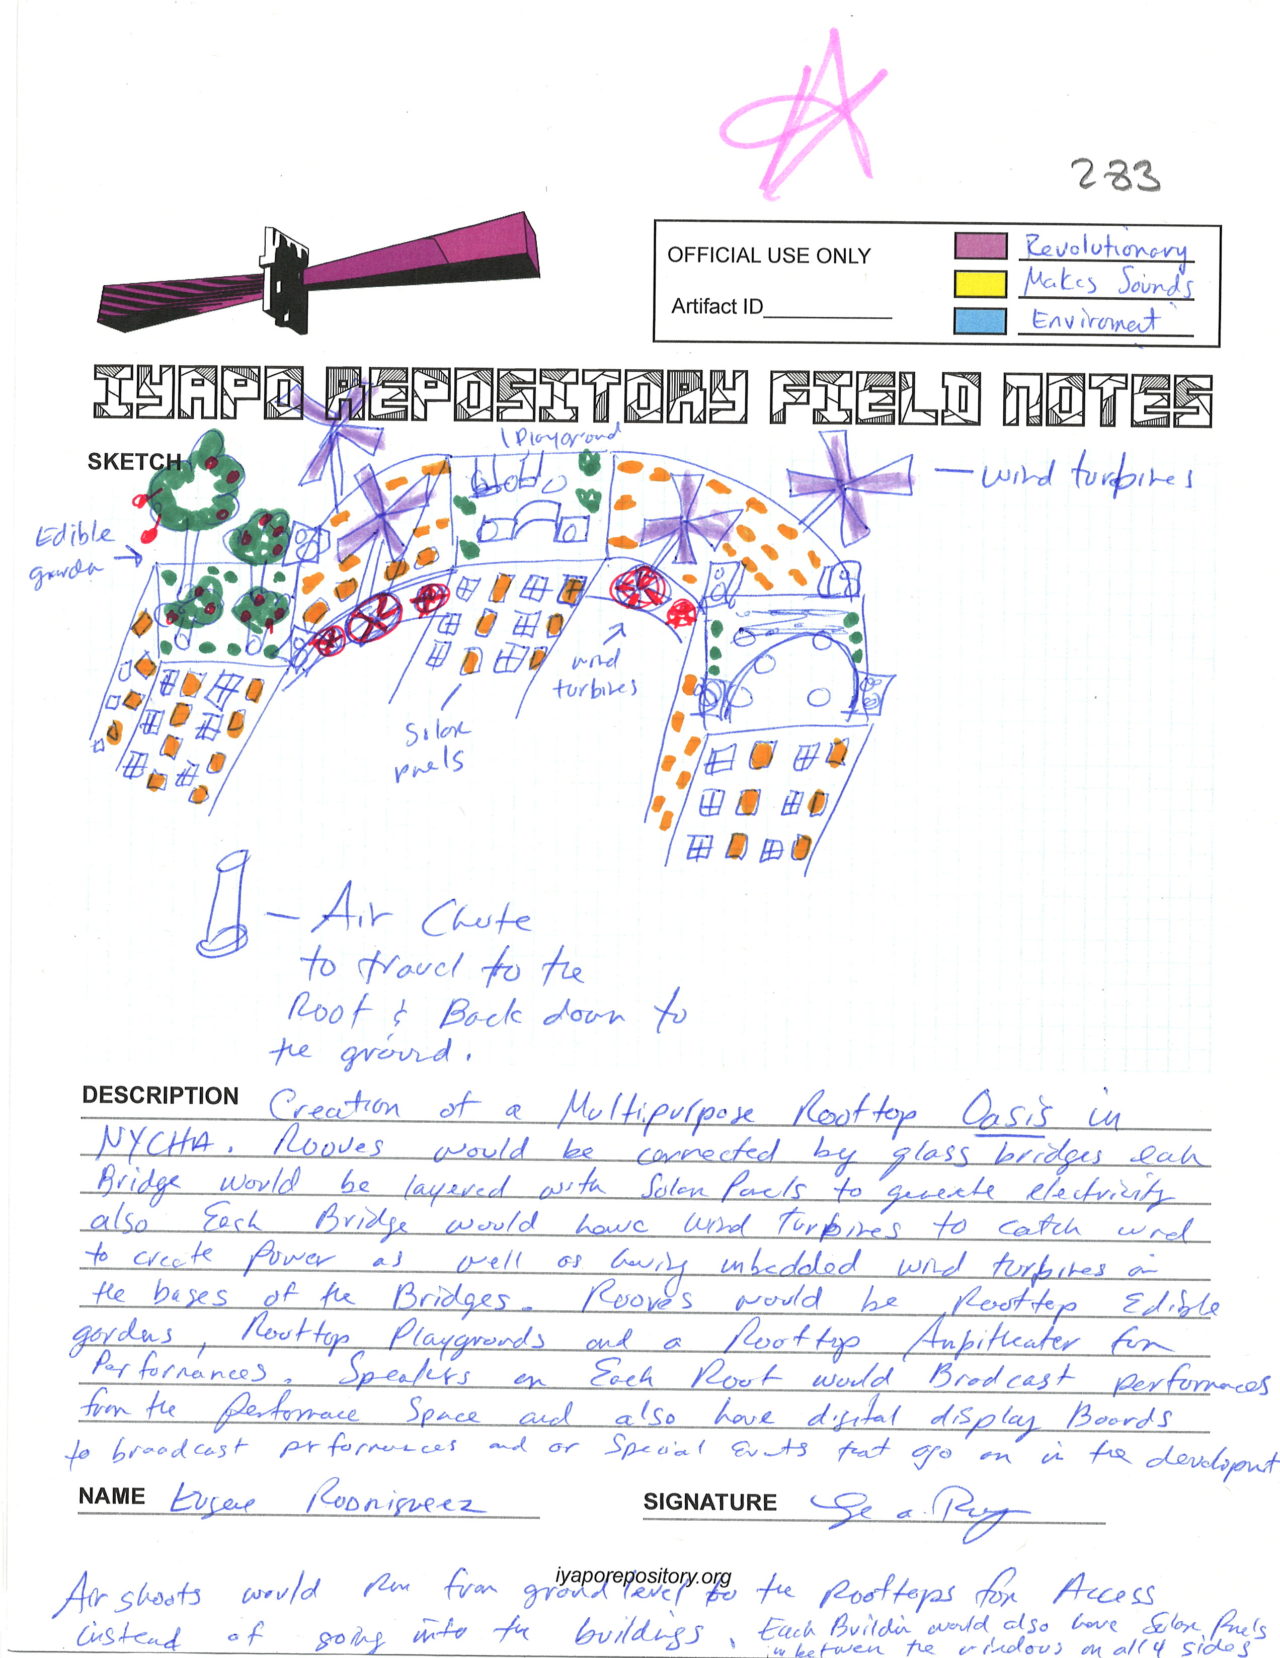 283
OFFICIAL USE ONLY
Artifact ID
Revolutionary
Makes Sounds
Enviroment
IYAPO REPOSITORY FIELD NOTES
SKETCH
Playground
wind turbines
Edible
garden
wind
turbines
Solar
panels
– Air Chute
to travel to the
Roof & Back down to
the ground.
DESCRIPTION Creation of a Multipurpose Rooftop Oasis in
NYCHA. Rooves would be connected by glass bridges each
Bridge would be layered with Solar Panels to generate electricity
also Each Bridge would have wind turbines to catch wind
to create Power as well as having imbedded wind turbines in
the bases of the Bridges. Rooves would be Rooftop Edible
gardens, Rooftop Playgrounds and a Rooftop Anpitheater for
Performances. Speakers on Each Roof would Brodcast performances
from the performace Space and also have digital display Boards
to broadcast performances and or Special Events that ago on in the development
NAME Eugene Rodriguez
SIGNATURE
iyaporepository.org
Air shoots would Run from ground level to the Rooftops for Access
instead of going into the buildings. Each Buildin would also have Solar Panels
in between the windows on all 4 sides